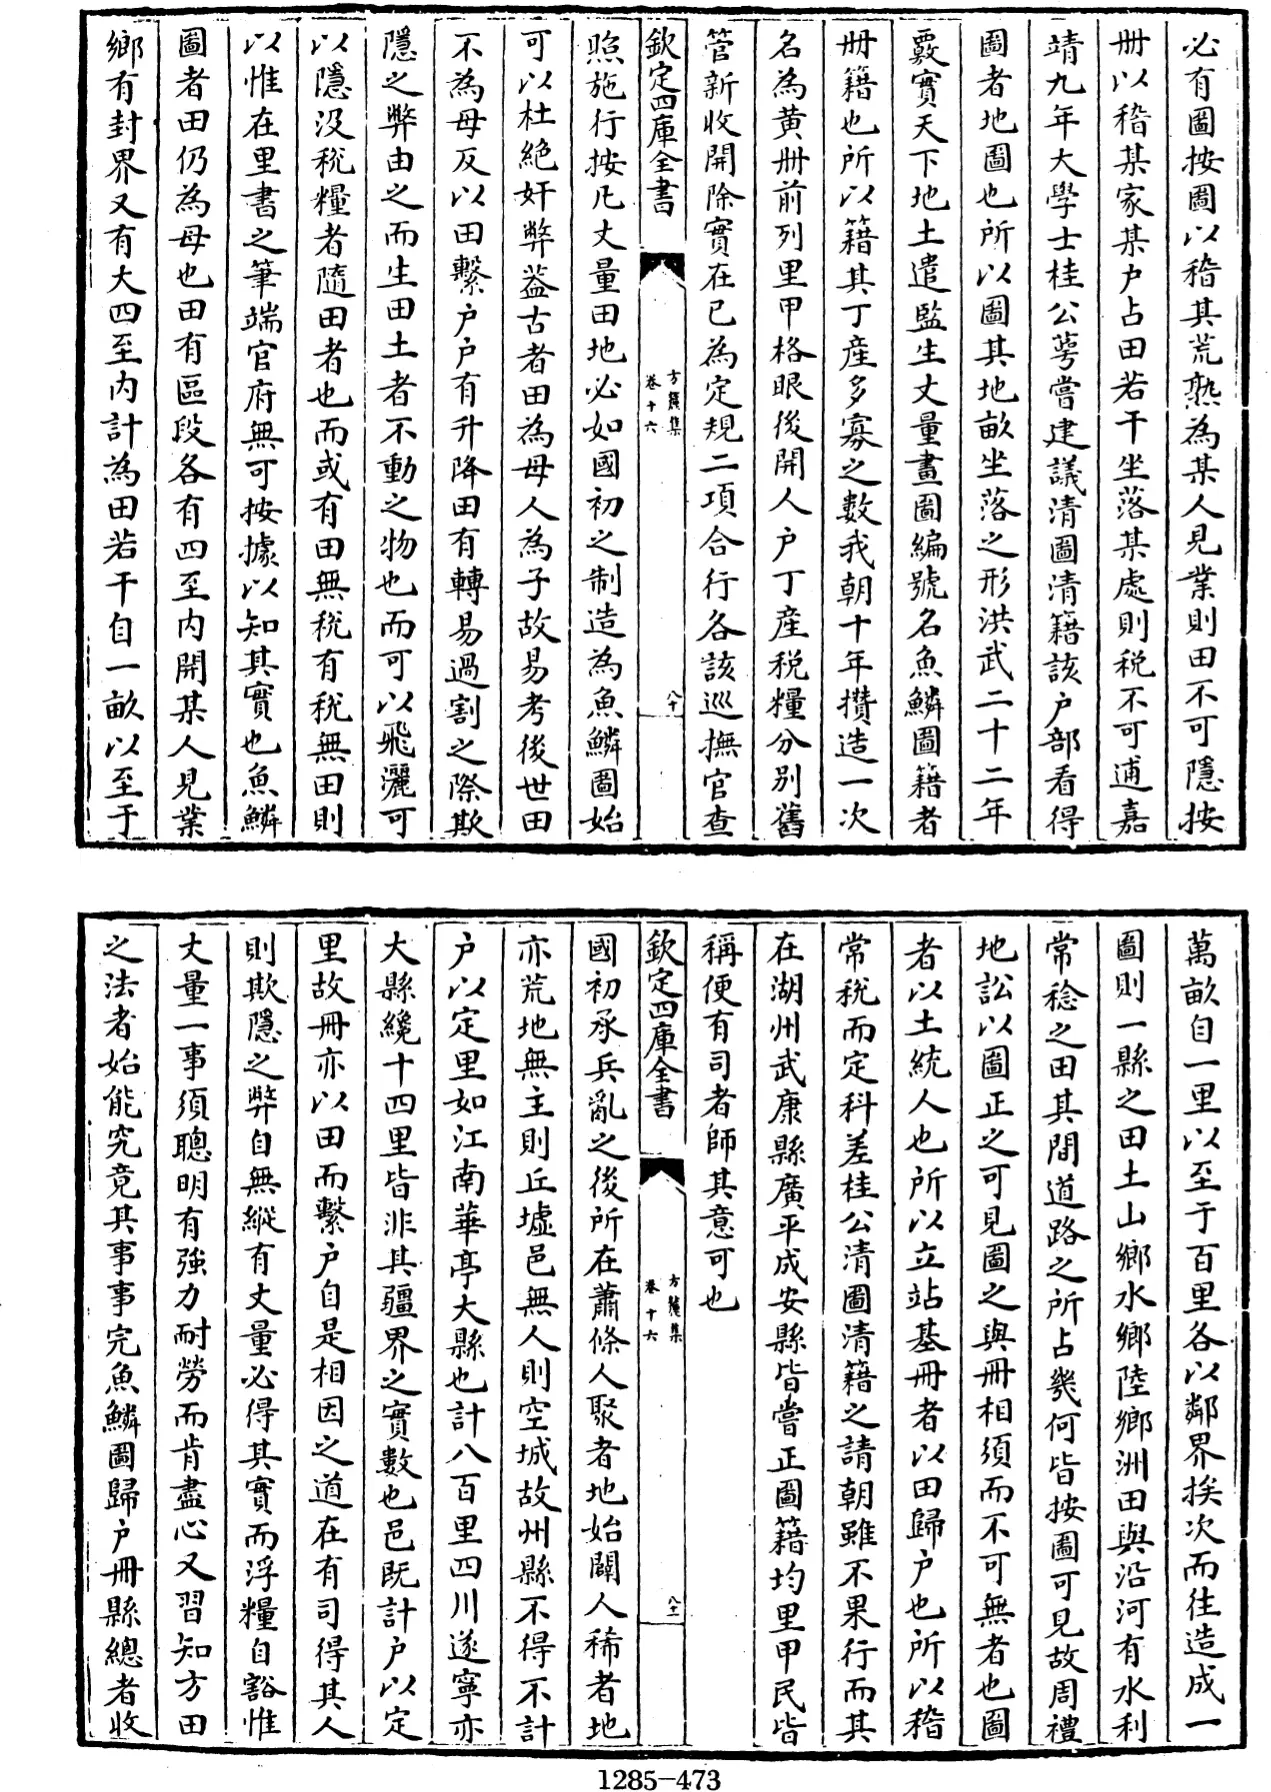 必有圖按圖以稽其荒熟為某人見業則田不可隱按
冊以稽某家某户占田若干坐落某處則税不可逋嘉
靖九年大學士桂公萼嘗建議清圖清籍該户部看得
圖者地圖也所以圖其地畝坐落之形洪武二十二年
覈實天下地土遣監生丈量畫圖編號名魚鱗圖籍者
冊籍也所以籍其丁產多寡之數我朝十年攢造一次
名為黄冊前列里甲格眼後開人户丁產税糧分别舊
管新收開除實在已為定規二項合行各該巡撫官查
欽定四庫全書
方麓集
卷十六
八十
照施行按凡丈量田地必如國初之制造為魚鱗圖始
可以杜絶奸弊葢古者田為母人為子故易考後世田
不為母反以田繫户户有升降田有轉易過割之際欺
隱之弊由之而生田土者不動之物也而可以飛灑可
以隱没税糧者隨田者也而或有田無税有税無田則
以惟在里書之筆端官府無可按據以知其實也魚鱗
圖者田仍為母也田有區段各有四至内開某人見業
鄉有封界又有大四至内計為田若干自一畝以至于
萬畝自一里以至于百里各以鄰界挨次而往造成一
圖則一縣之田土山鄉水鄉陸鄉洲田與沿河有水利
常稔之田其間道路之所占幾何皆按圖可見故周禮
地訟以圖正之可見圖之與冊相須而不可無者也圖
者以土統人也所以立站基冊者以田歸户也所以稽
常税而定科差桂公清圖清籍之請朝雖不果行而其
在湖州武康縣廣平成安縣皆嘗正圖籍均里甲民皆
稱便有司者師其意可也
欽定四庫全書
方麓集
卷十六
八十一
國初承兵亂之後所在蕭條人聚者地始闢人稀者地
亦荒地無主則丘墟邑無人則空城故州縣不得不計
户以定里如江南華亭大縣也計八百里四川遂寧亦
大縣纔十四里皆非其疆界之實數也邑既計户以定
里故冊亦以田而繫户自是相因之道在有司得其人
則欺隱之弊自無縱有丈量必得其實而浮糧自豁惟
丈量一事須聰明有強力耐勞而肯盡心又習知方田
之法者始能究竟其事事完魚鱗圖歸户冊縣總者收
1285-473